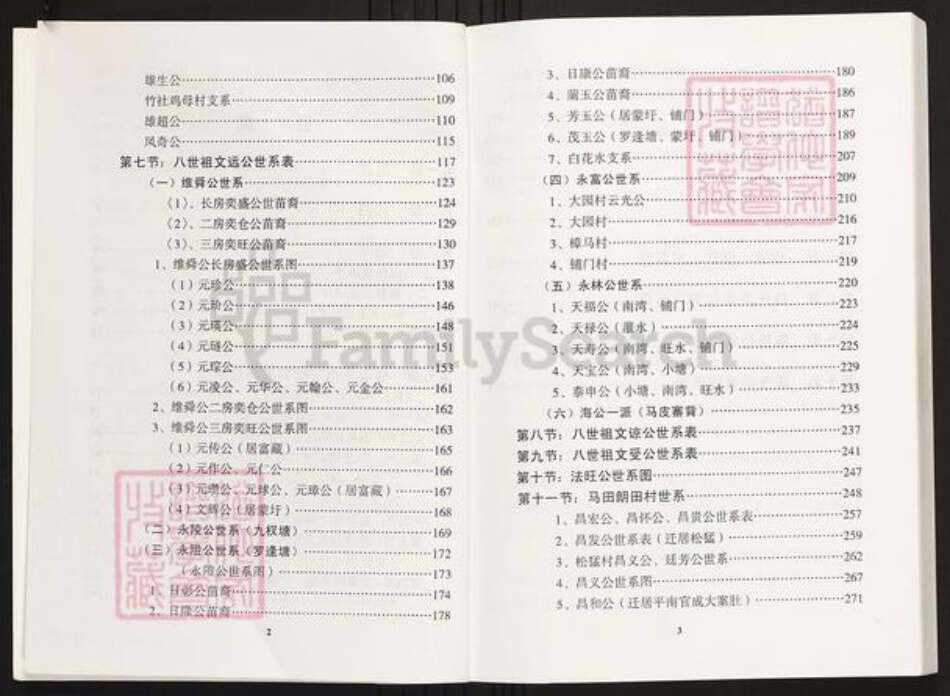 雄生公 106
竹社鸡母村支系 109
雄超公 110
凤奇公 115
第七节：八世祖文远公世系表 117
（一）维舜公世系 123
（1）、长房奕盛公世苗裔 124
（2）、二房奕仓公苗裔 129
（3）、三房奕旺公苗裔 130
1、维舜公长房盛公世系图 137
（1）元珍公 138
（2）元玠公 146
（3）元瑛公 148
（4）元琏公 151
（5）元琮公 153
（6）元凌公、元华公、元翰公、元金公 161
2、维舜公二房奕仓公世系图 162
3、维舜公三房奕旺公世系图 163
（1）元传公（居富藏） 165
（2）元作公、元仁公 166
（3）元瓒公、元球公、元璋公（居富藏） 167
（4）文辉公（居蒙圩） 168
（二）永陵公世系（九权塘） 169
（三）永隥公世系（罗逢塘） 172
（永隥公世系图） 173
1、日彰公苗裔 174
2、日隆公苗裔 178
2
3、日康公苗裔 180
4、蔺玉公苗裔 186
5、芳玉公（居蒙圩、铺门） 187
6、茂玉公（罗逢塘、蒙圩、铺门） 189
7、白花水支系 207
（四）永富公世系 209
1、大园村云光公 210
2、大园村 216
3、樟马村 217
4、铺门村 219
（五）永林公世系 220
1、天福公（南湾、铺门） 223
2、天禄公（厘水） 224
3、天寿公（南湾、旺水、铺门） 225
4、天宝公（南湾、小塘） 229
5、泰申公（小塘、南湾、旺水） 233
（六）海公一派（马皮寨背） 235
第八节：八世祖文谅公世系表 237
第九节：八世祖文受公世系表 241
第十节：法旺公世系图 247
第十一节：马田朗田村世系 248
1、昌宏公、昌怀公、昌贵公世系表 257
2、昌发公世系表（迁居松猛） 259
3、松猛村昌义公、廷芳公世系 262
4、昌义公世系图 267
5、昌和公（迁居平南官成大寨肚） 271
3
FamilySearch